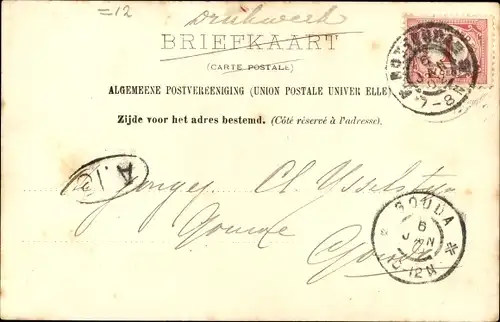 =12
Drukwerk
BRIEFKAART
(CARTE POSTALE)
ALGEMEENE POSTVEREENIGING (UNION POSTALE UNIVER ELLE)
Zijde voor het adres bestemd. (Côté réservé à l'adresse).
ROTTERDAM
7-8
A.10
Cl. IJsselsteyn
Gouda
GOUDA
6
JAN
10-12N